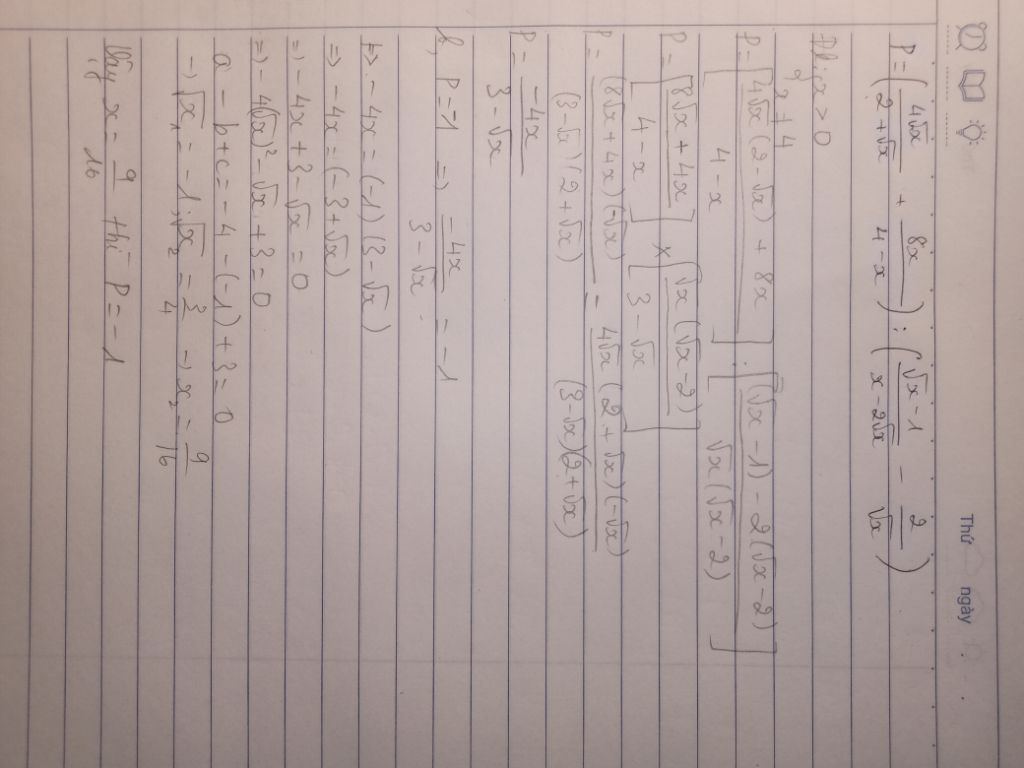 Thứ ngày
P = (4√x / (2+√x) + 8x / (4-x)) : ((√x-1) / (x-2√x) - 2/√x)
Đk: x > 0
x ≠ 4
P = [(4√x(2-√x) + 8x) / (4-x)] : [((√x-1) - 2(√x-2)) / (√x(√x-2))]
P = [(8√x + 4x) / (4-x)] × [√x(√x-2) / (3-√x)]
P = (8√x + 4x)(-√x) / ((3-√x)(2+√x)) = 4√x(2+√x)(-√x) / ((3-√x)(2+√x))
P = -4x / (3-√x)
b, P = -1 => -4x / (3-√x) = -1
=> -4x = (-1)(3-√x)
=> -4x = (-3+√x)
=> -4x + 3 - √x = 0
=> -4(√x)² - √x + 3 = 0
a - b + c = -4 - (-1) + 3 = 0
→ √x₁ = -1; √x₂ = 3/4 → x₂ = 9/16
Vậy x = 9/16 thì P = -1